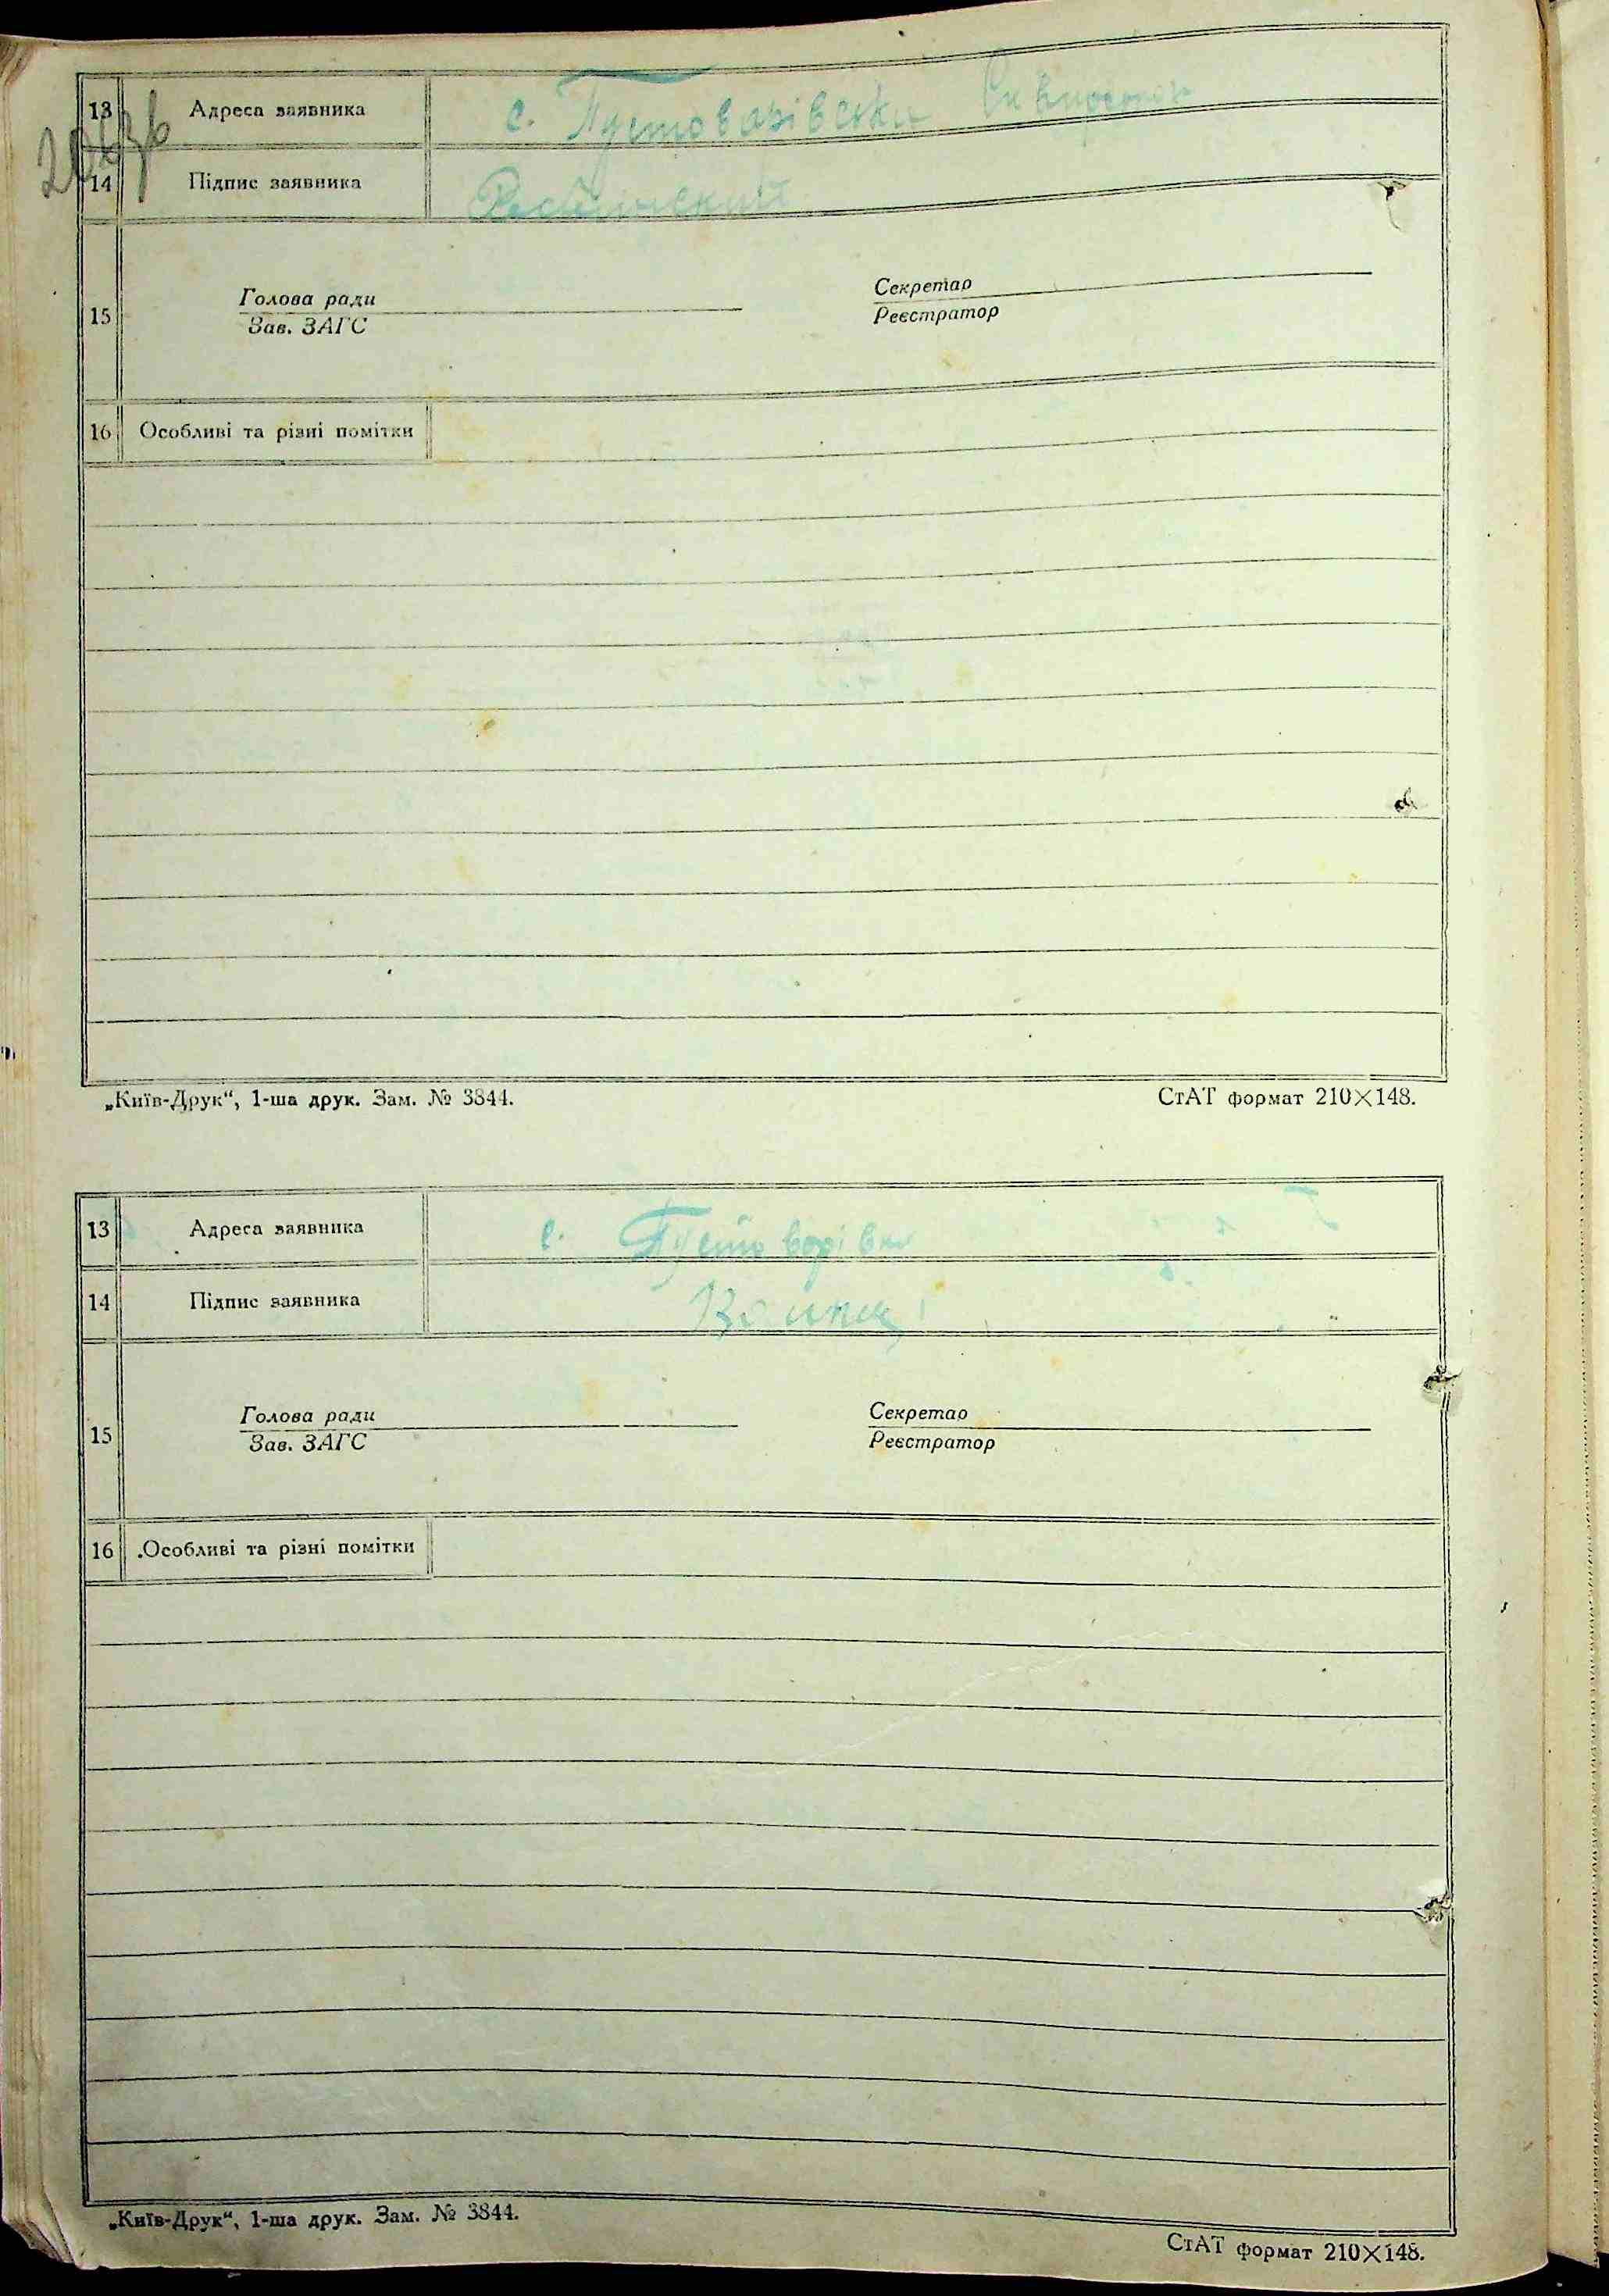 13 Адреса заявника с.
14 Підпис заявника
15 Голова ради Секретар
Зав. ЗАГС Реєстратор
16 Особливі та різні помітки
„Київ-Друк“, 1-ша друк. Зам. № 3844. СтАТ формат 210×148.
13 Адреса заявника с. Пустоворівка
14 Підпис заявника
15 Голова ради Секретар
Зав. ЗАГС Реєстратор
16 Особливі та різні помітки
„Київ-Друк“, 1-ша друк. Зам. № 3844.
СтАТ формат 210×148.